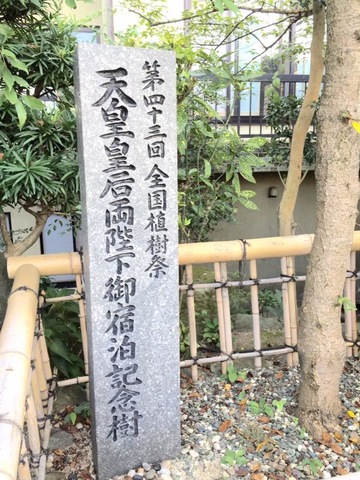 第四十三回 全国植樹祭
天皇皇后両陛下御宿泊記念樹